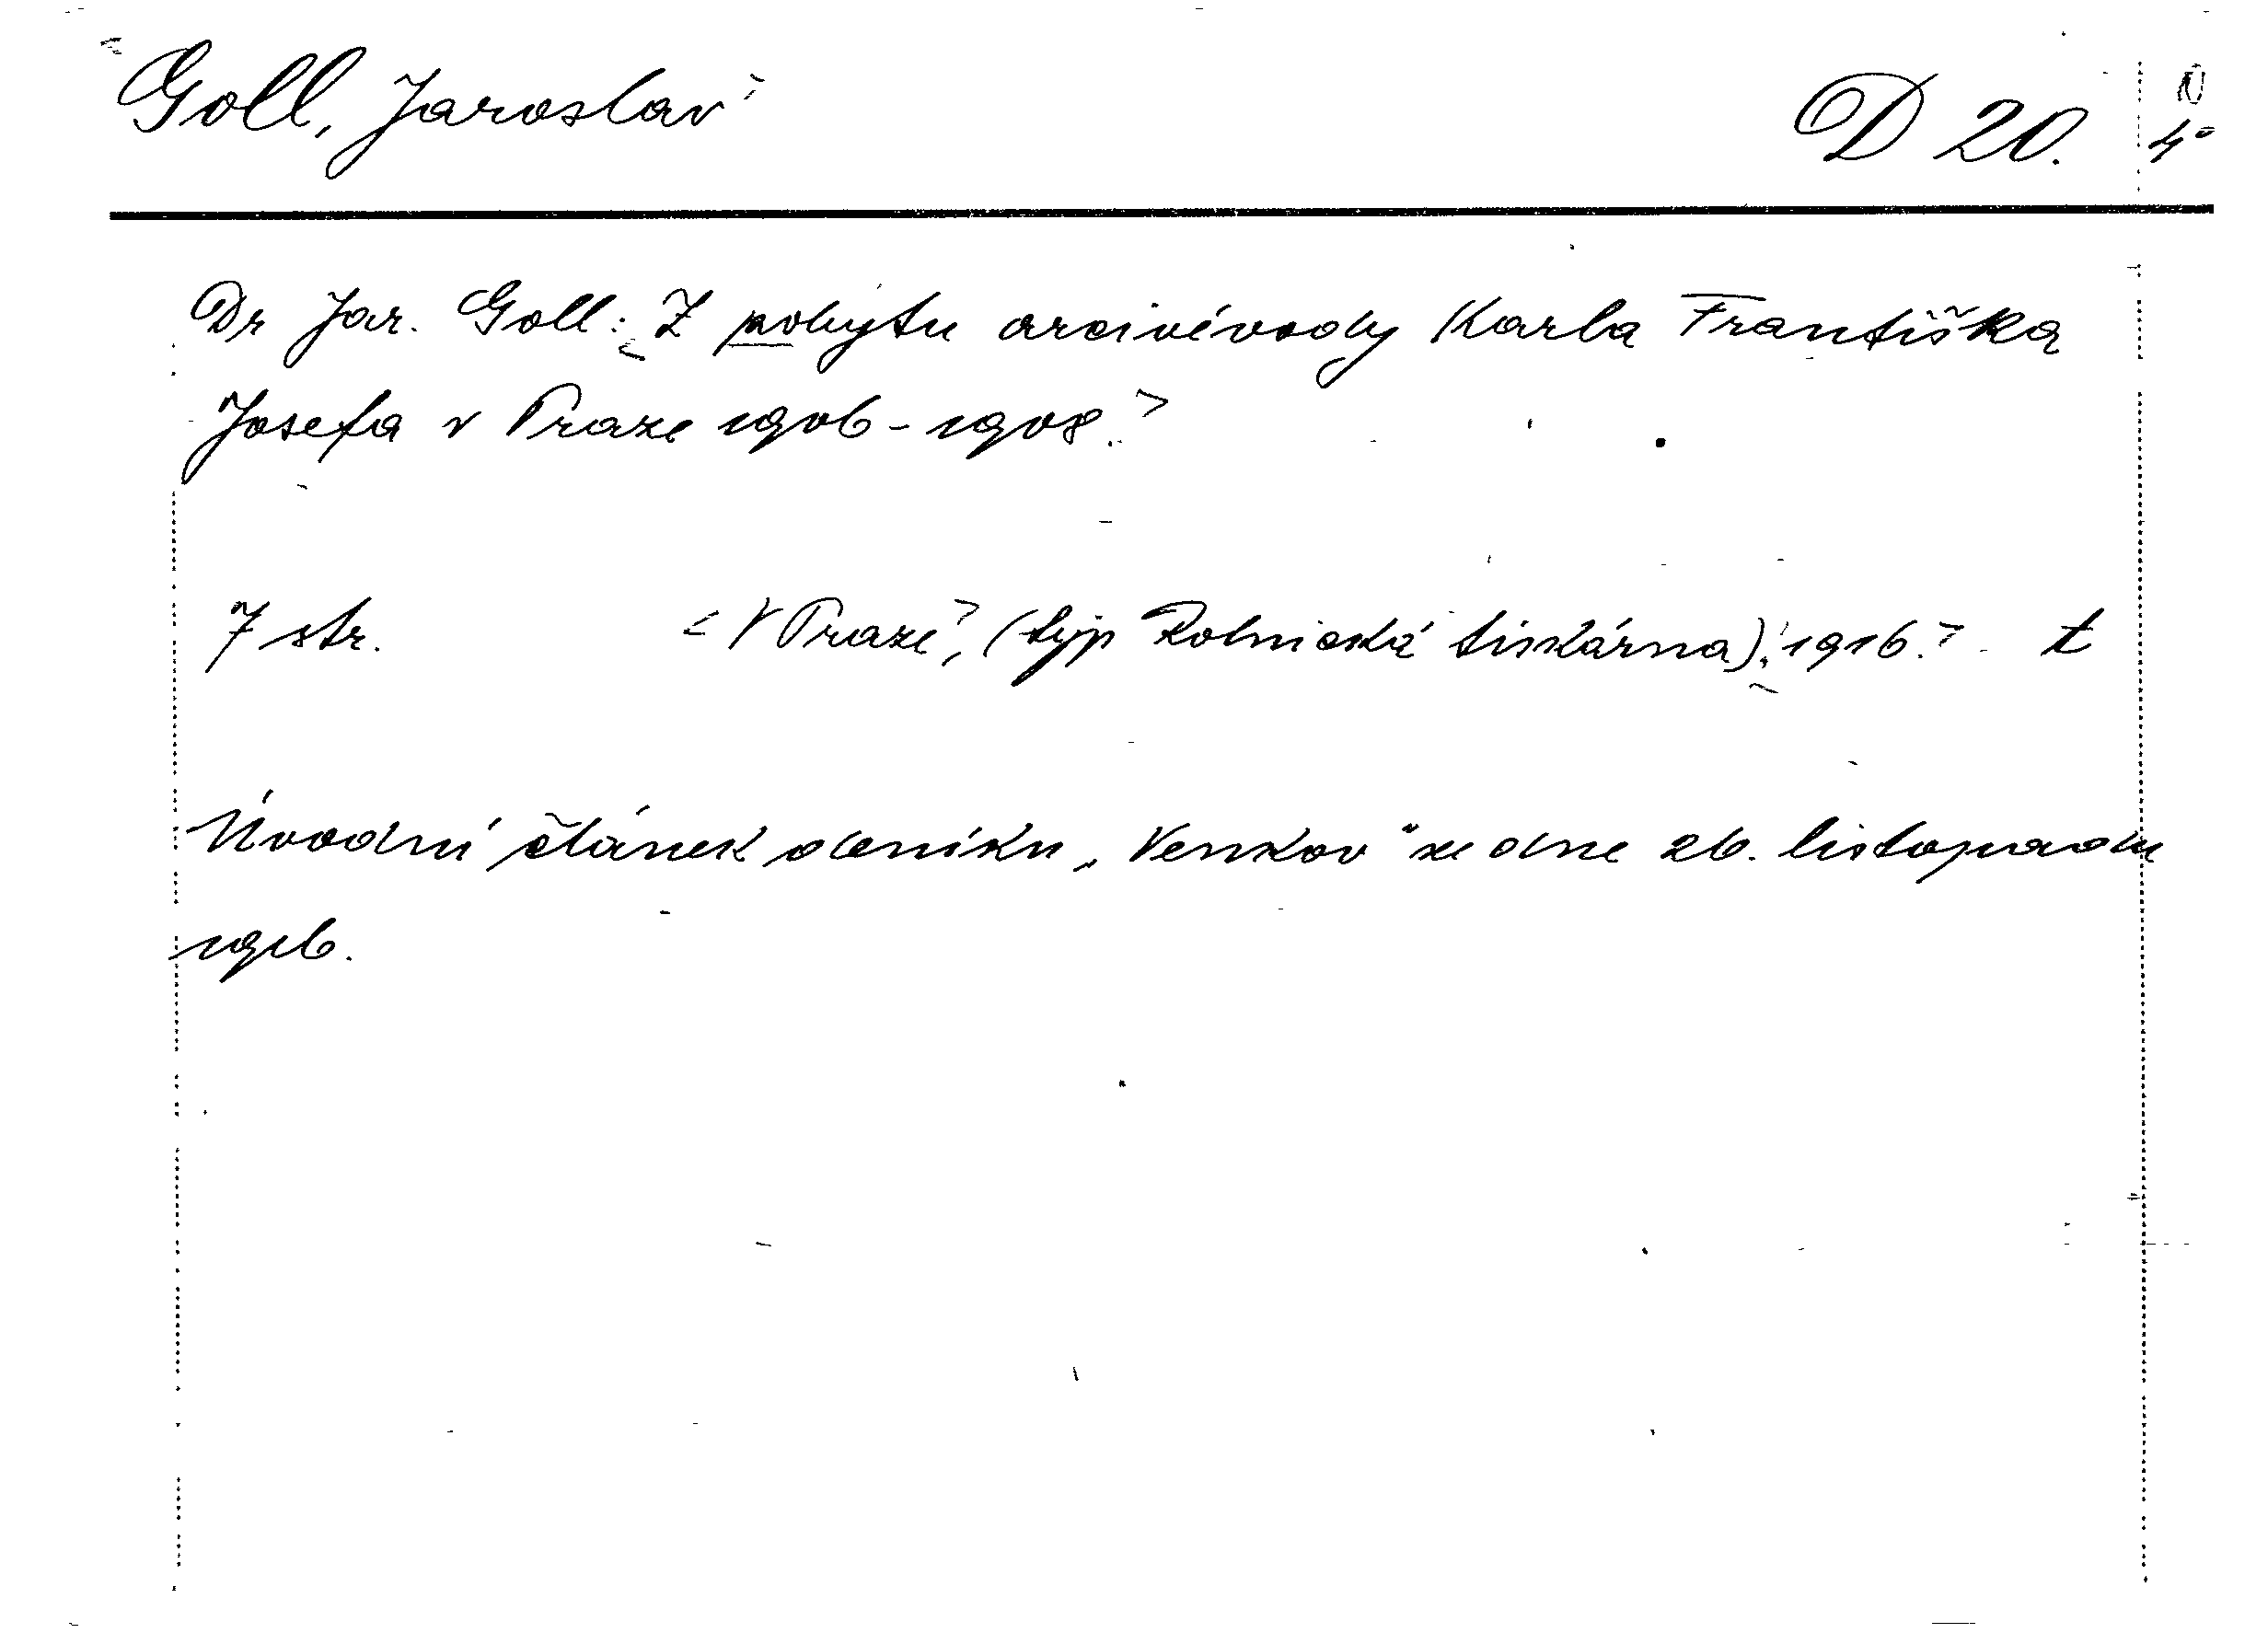 Goll, Jaroslav D 20. 4°
Dr Jar. Goll: Z pobytu arcivévody Karla Františka
Josefa v Praze 1906-1908.
7 str. V Praze, (typ Rolnická tiskárna), 1916. t
Úvodní článek deníku „Venkov" ze dne 26. listopadu
1916.